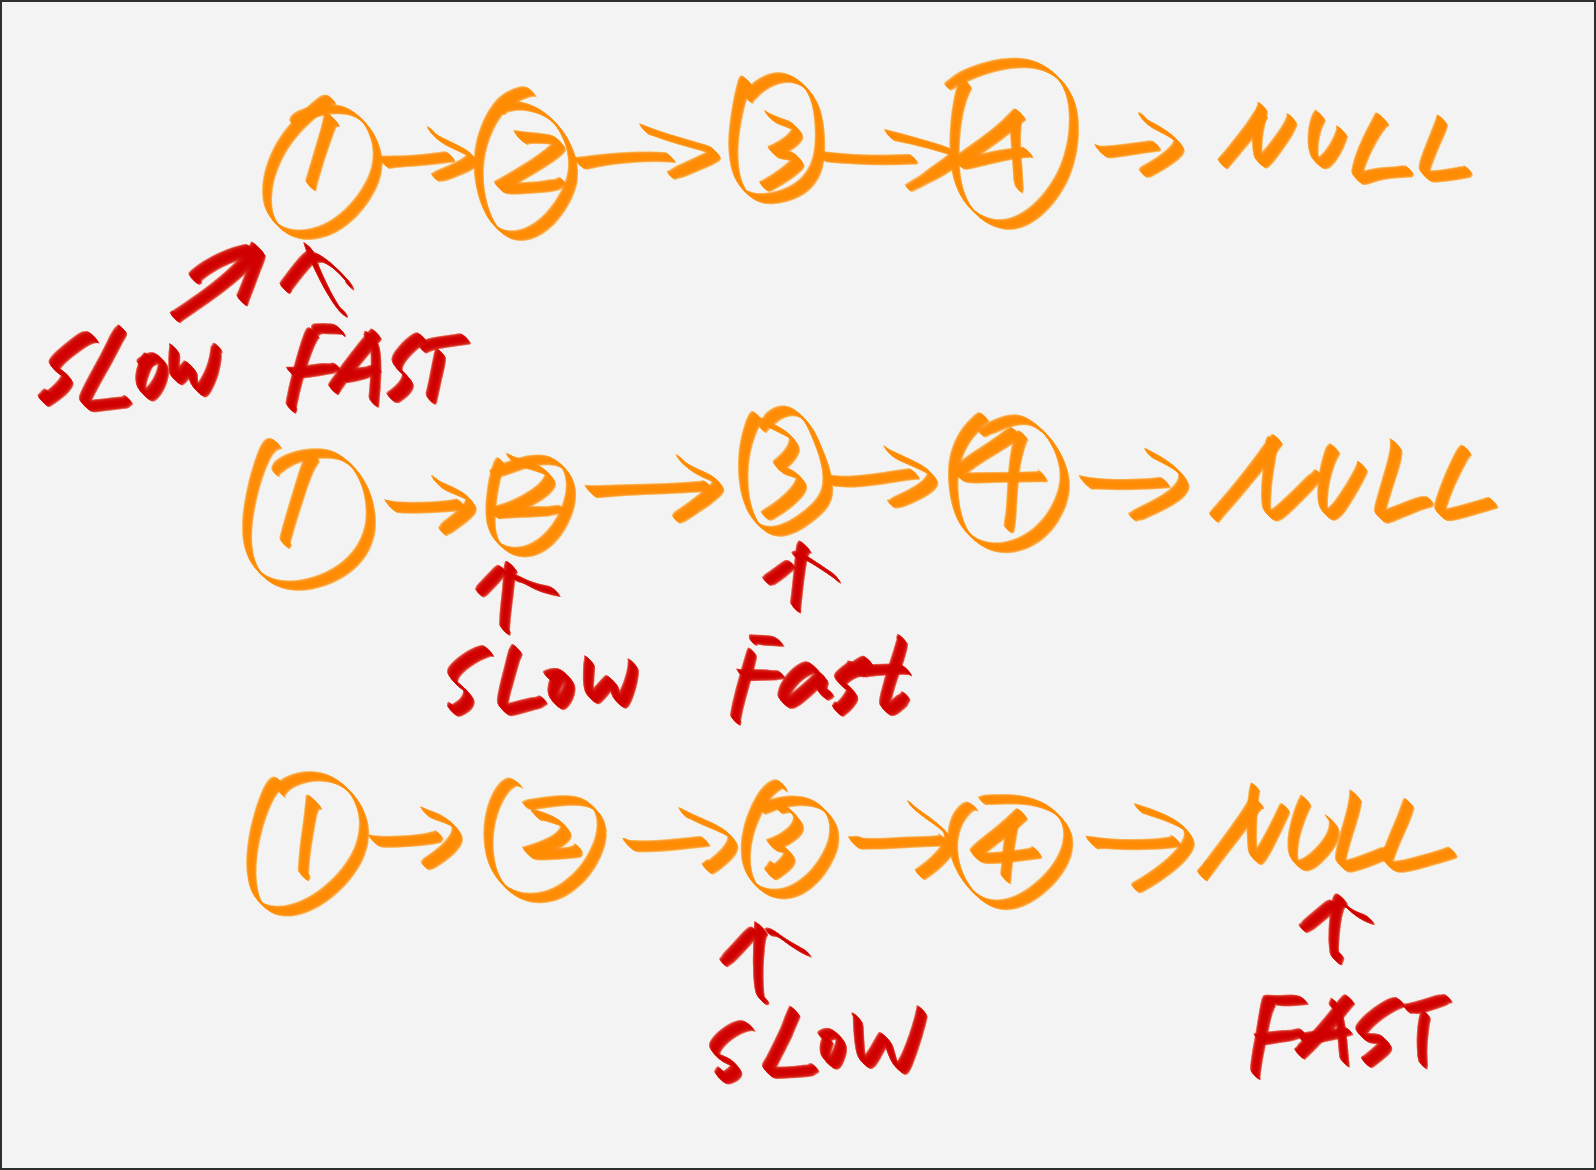 1 → 2 → 3 → 4 → NULL
SLOW FAST
1 → 2 → 3 → 4 → NULL
SLOW Fast
1 → 2 → 3 → 4 → NULL
SLOW FAST